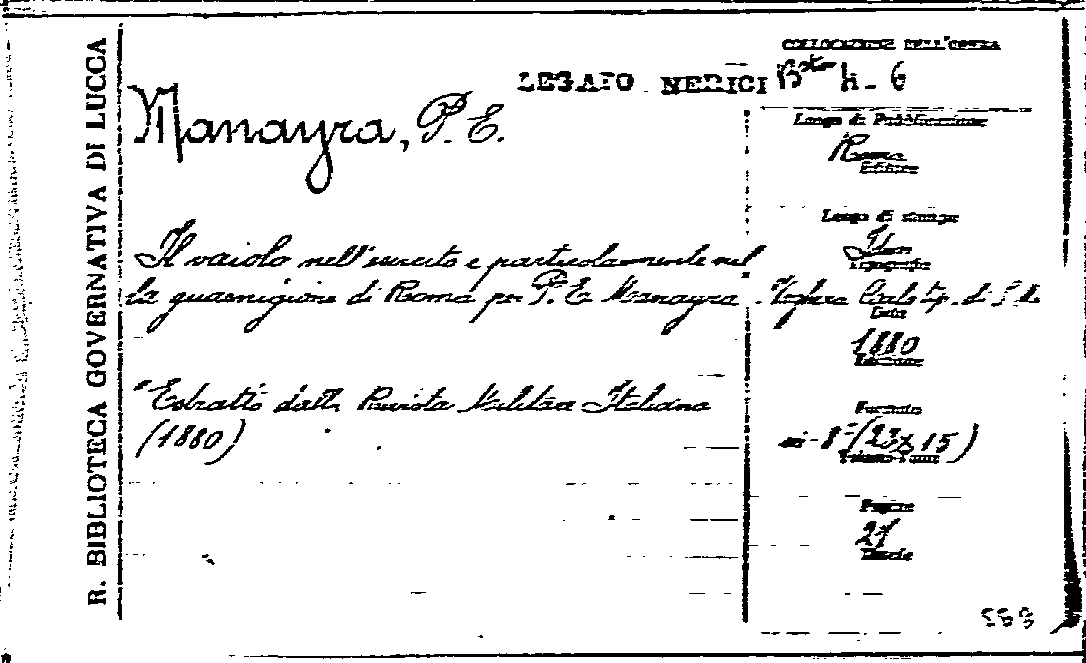 R. BIBLIOTECA GOVERNATIVA DI LUCCA
COLLOCAZIONE DELL'OPERA
LEGATO NERICI Bta h. 6
Manayra, P. E.
Luogo di Pubblicazione
Roma
Editore
Luogo di stampa
Il vaiolo nell'esercito e particolarmente nel
Tipografia
la guarnigione di Roma per P. E. Manayra
Voghera Carlo Tip. di S. M.
Data
1880
Edizione
Estratto dalla Rivista Militare Italiana
(1880)
Formato
in-8° (23x15)
Pagine
21
Tavole